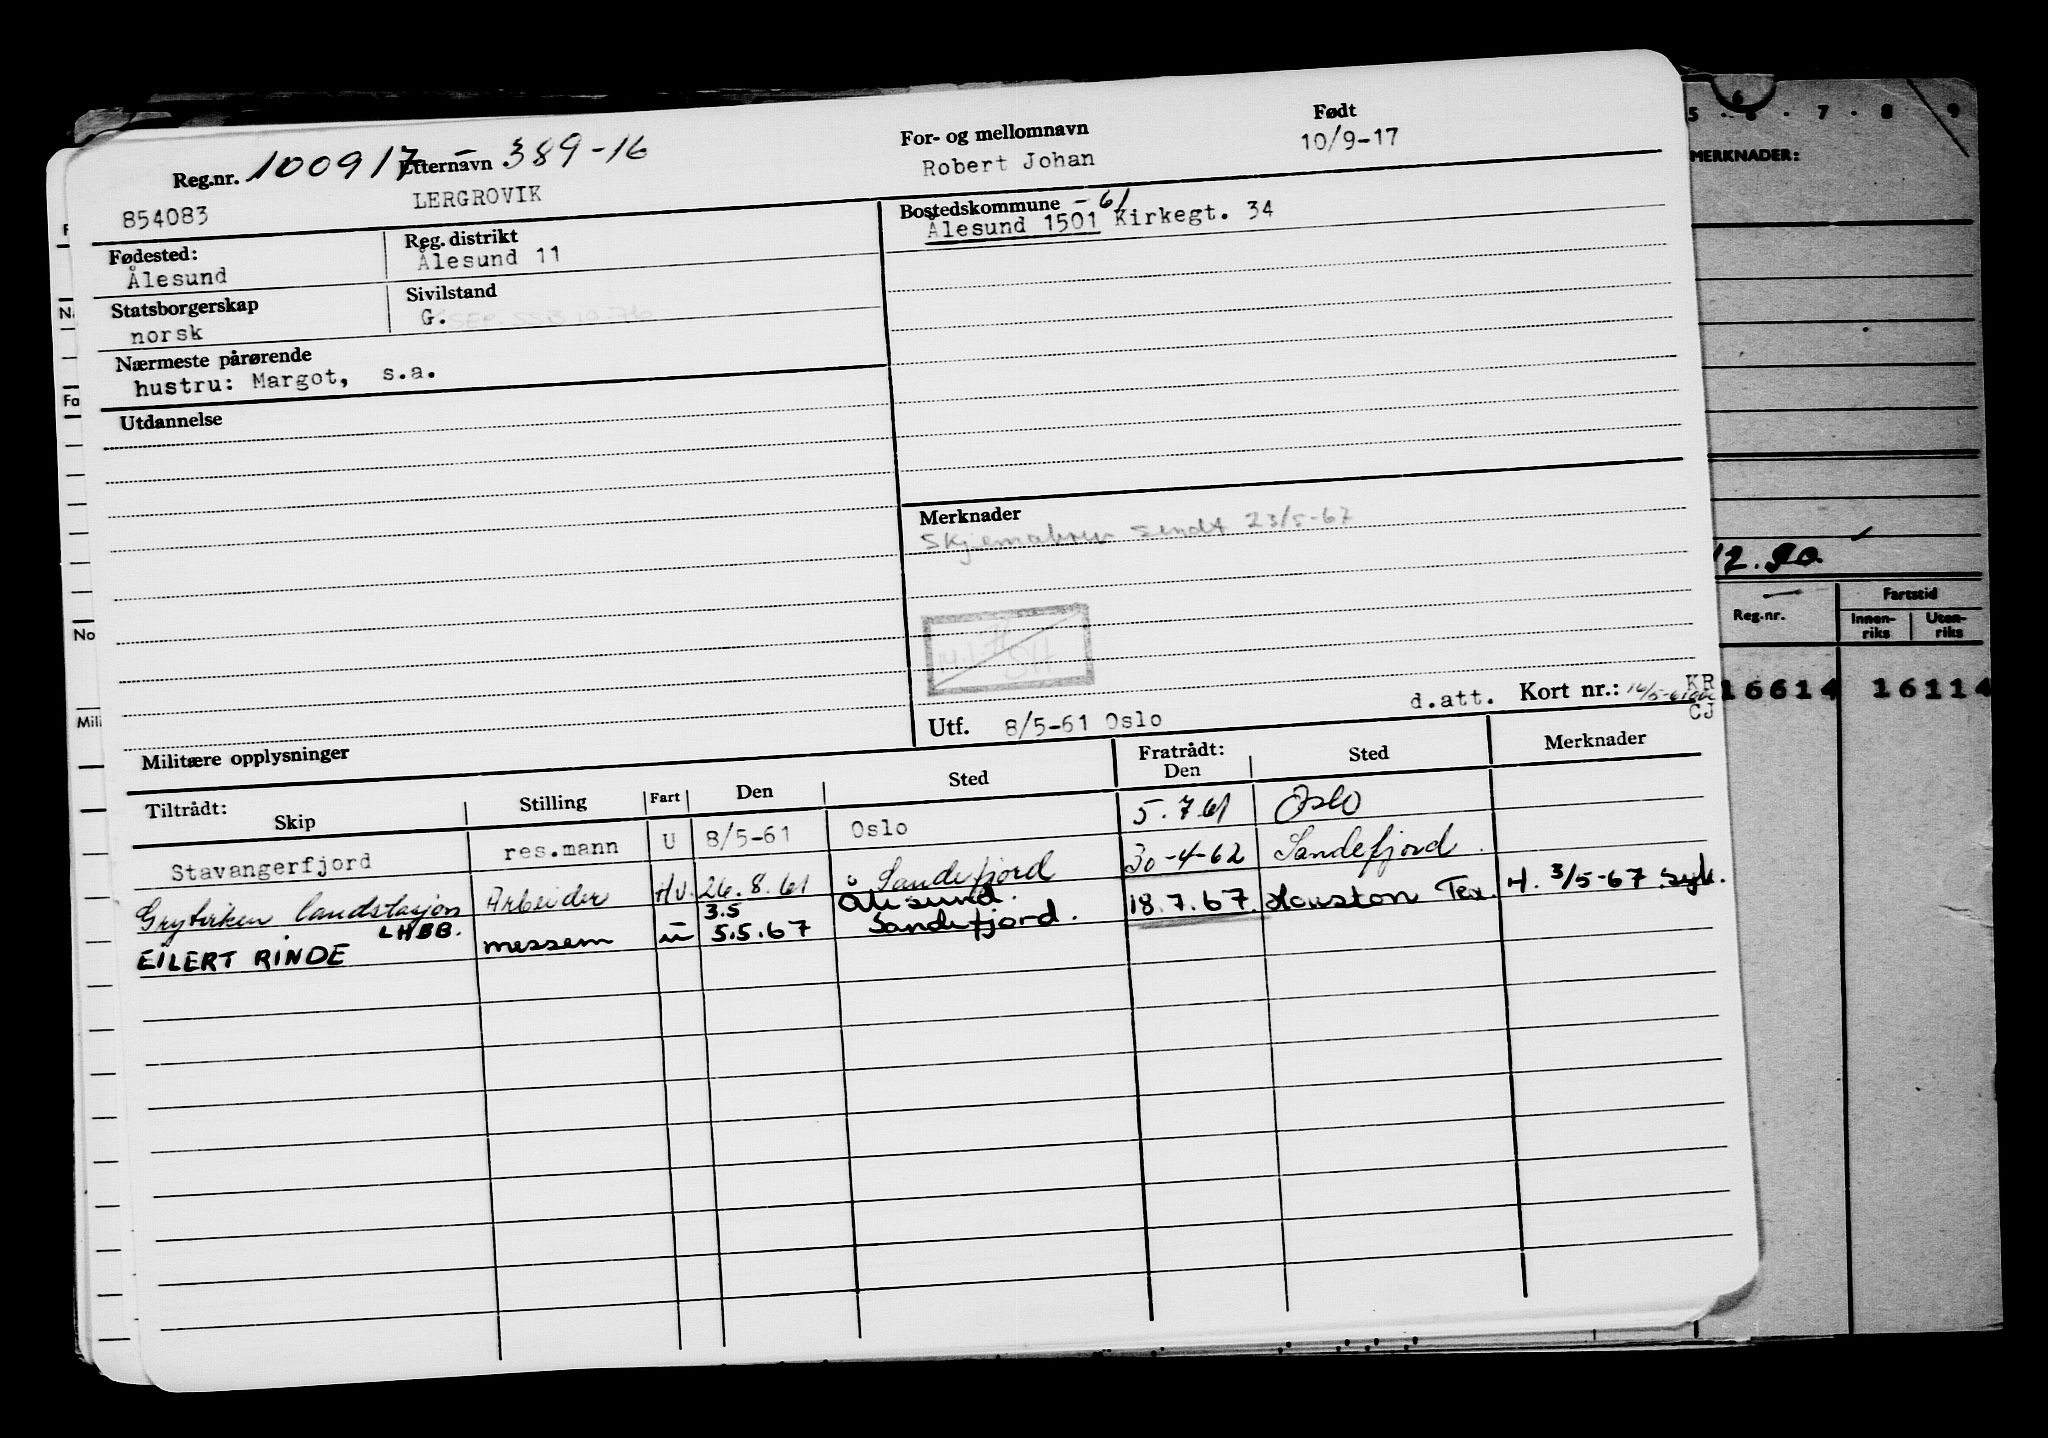 Reg.nr. 100917 - 389-16
854083
Etternavn
LERGROVIK
For- og mellomnavn
Robert Johan
Født
10/9-17
Fødested:
Ålesund
Reg. distrikt
Ålesund 11
Bostedskommune -61
Ålesund 1501 Kirkegt. 34
Statsborgerskap
norsk
Sivilstand
G. SEP. SSB 10.76
Nærmeste pårørende
hustru: Margot, s.a.
Utdannelse
Merknader
sendt 23/5-67
Militære opplysninger
Utf. 8/5-61 Oslo
d.att. Kort nr.: KR
CJ
Tiltrådt: Skip Stilling Fart Den Sted Fratrådt: Den Sted Merknader
Stavangerfjord res.mann U 8/5-61 Oslo 5.7.61 Oslo
Grytviken landstasjon Arbeider H/V. 26.8.61 Sandefjord 30-4-62 Sandefjord
LHBB. 3.5 Ålesund.
EILERT RINDE messem u 5.5.67 Sandefjord. 18.7.67. Houston Tex. H. 3/5-67. syk.
5 . 6 . 7 . 8 . 9
MERKNADER:
12.90
Reg.nr.
Fartstid
Innen-riks
Uten-riks
16614 16114
Fa
No
Mili